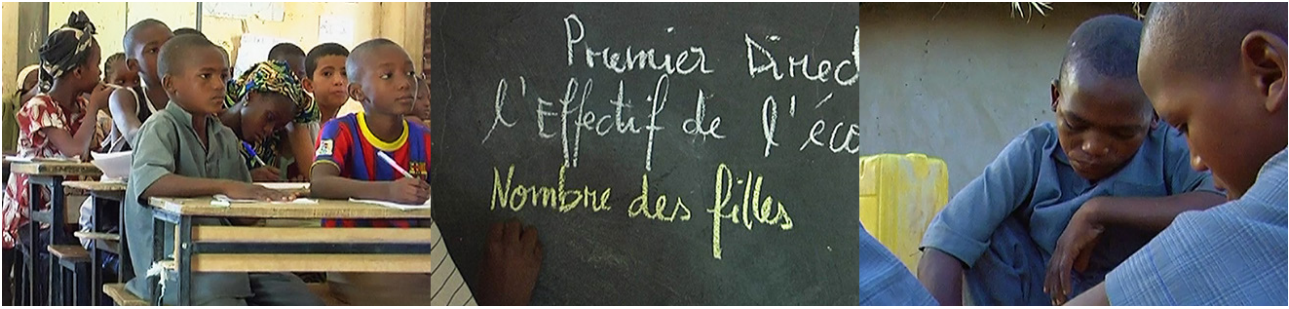 Premier Direc
l'Effectif de l'éco
Nombre des filles